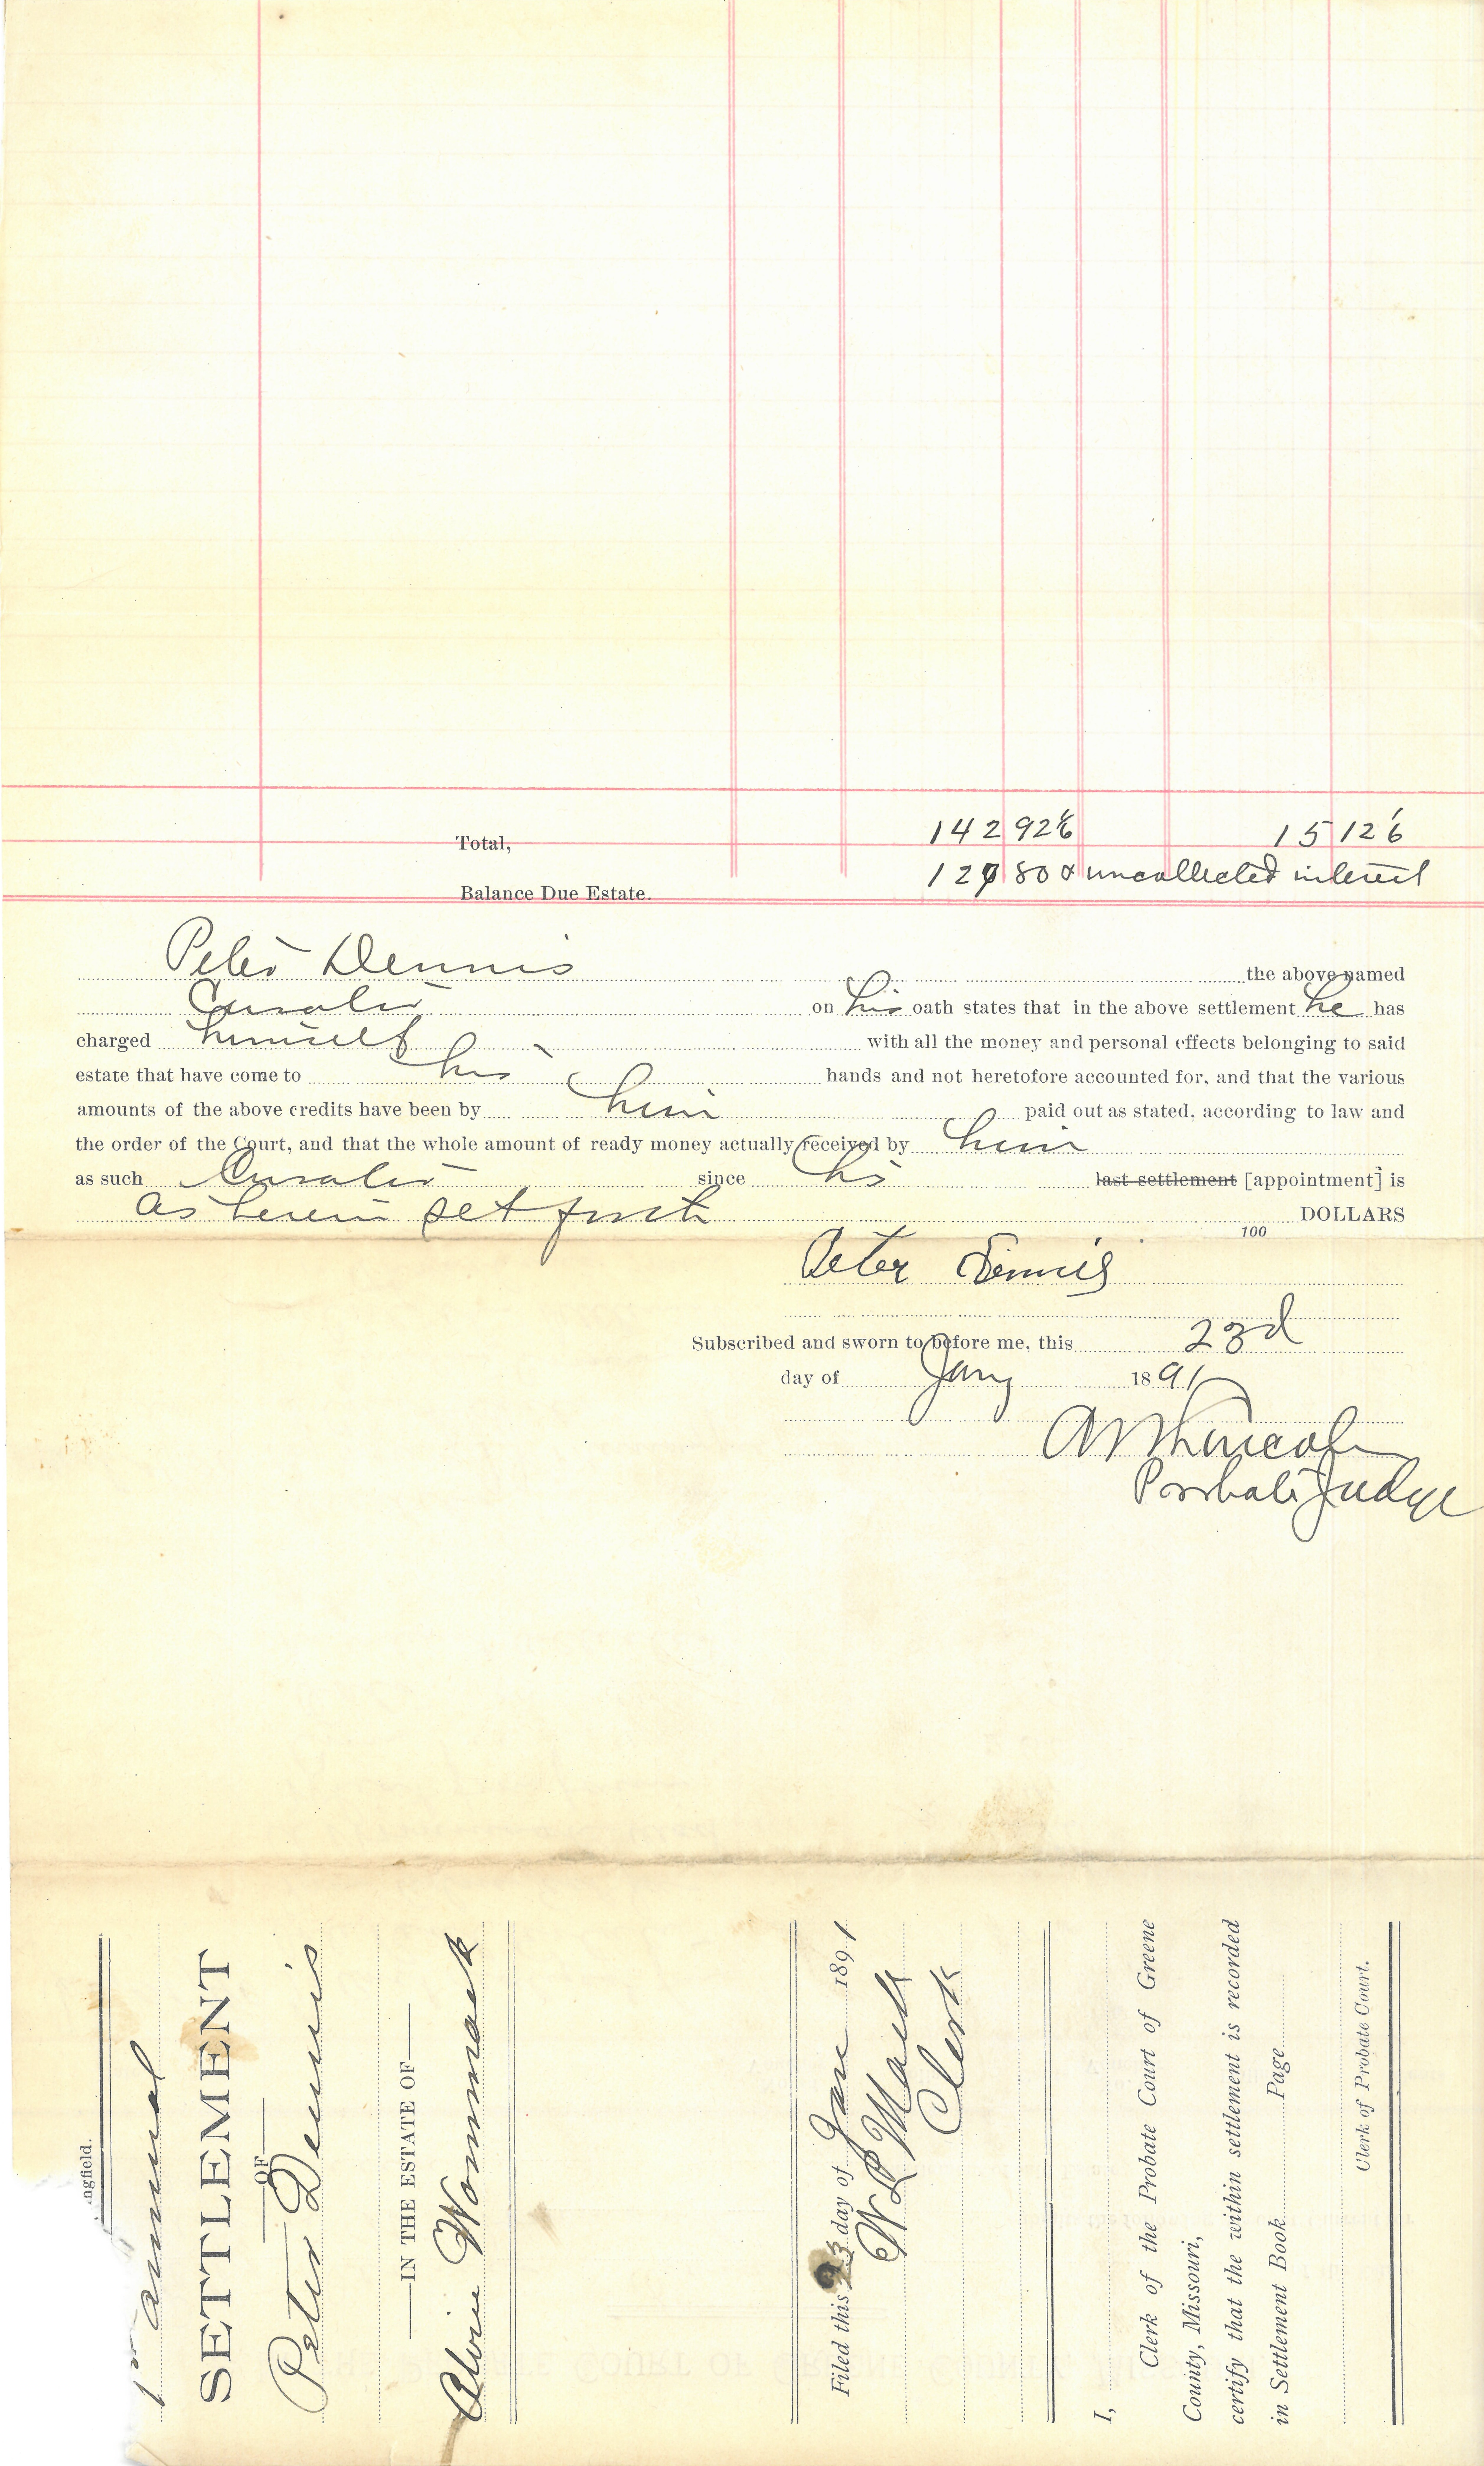 Total, 142 926 15 126
Balance Due Estate. 127 80 & uncollected interest
Peter Dennis the above named
Curator on his oath states that in the above settlement he has
charged himself with all the money and personal effects belonging to said
estate that have come to his hands and not heretofore accounted for, and that the various
amounts of the above credits have been by him paid out as stated, according to law and
the order of the Court, and that the whole amount of ready money actually received by him
as such Curator since his last settlement [appointment] is
as herein set forth 100 DOLLARS
Peter Dennis
Subscribed and sworn to before me, this 23d
day of Jany 1891
Lincoln
Probate Judge
ngfield.
1st annual
SETTLEMENT
OF
Peter Dennis
IN THE ESTATE OF
Alvin Wommack
Filed this 23 day of Jan 1891
W L
Clerk
I,
Clerk of the Probate Court of Greene
County, Missouri,
certify that the within settlement is recorded
in Settlement Book Page
Clerk of Probate Court.